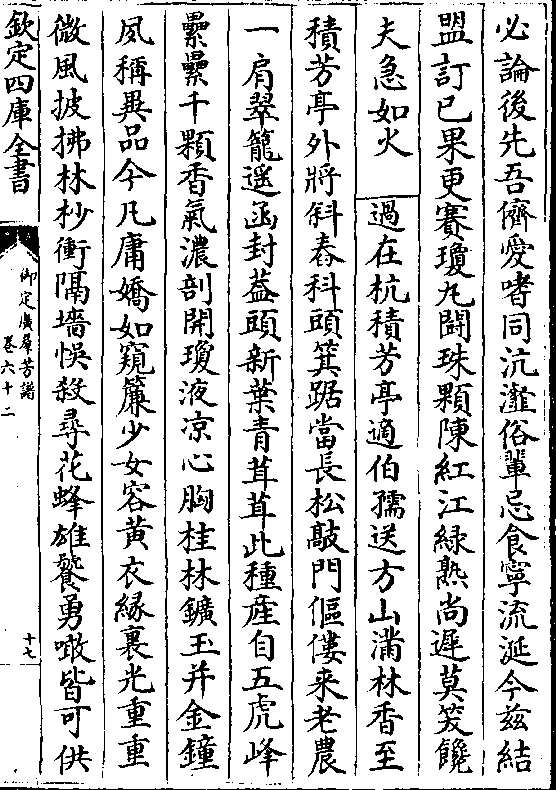 必論後先吾儕愛嗜同沆瀣俗輩忌食寧流涎今茲結
盟訂已果更賽瓊丸鬪珠顆陳紅江緑熟尚遲莫笑饞
夫急如火　過在杭積芳亭適伯孺送方山滿林香至
積芳亭外將斜舂科頭箕踞當長松敲門傴僂来老農
一肩翠籠遥函封葢頭新葉青茸茸此種産自五虎峰
纍纍千顆香氣濃剖開瓊液凉心胸桂林鑛玉并金鐘
夙稱異品今凡庸嬌如窺簾少女容黄衣緣裏光重重
微風披拂林杪衝隔墻悞殺尋花蜂雄餐勇噉皆可供
欽定四庫全書
御定廣羣芳譜
卷六十二
十七